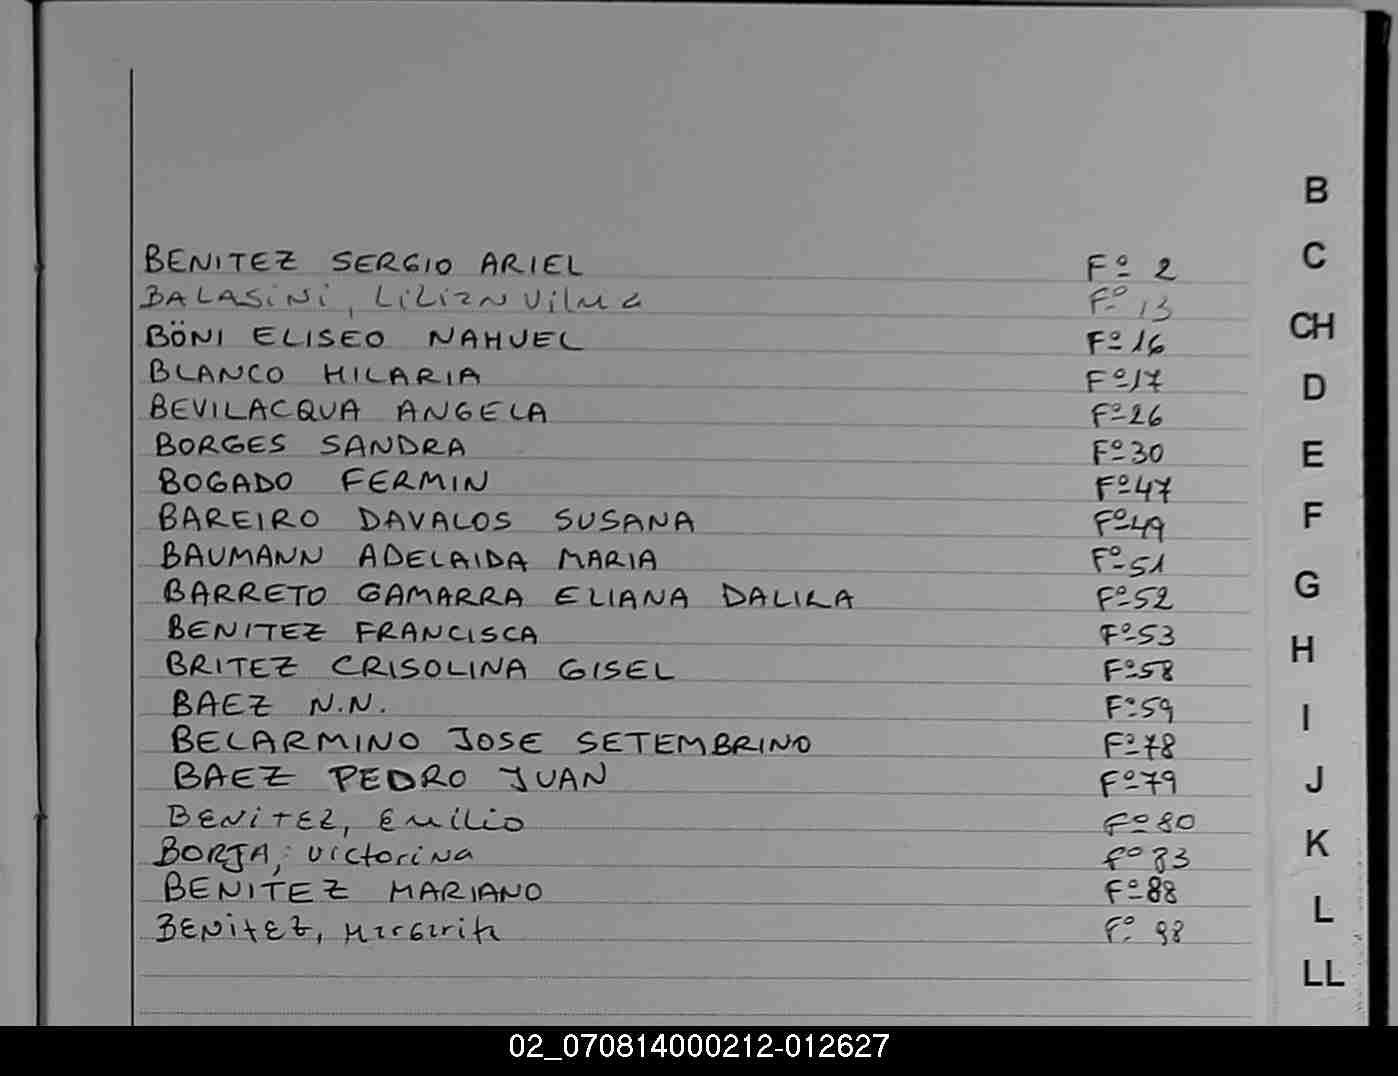 B
BENITEZ SERGIO ARIEL Fº 2
C
BALASiNi, LiLiAN ViLMA Fº 13
CH
BÖNI ELISEO NAHUEL Fº 16
BLANCO HILARIA Fº 17
D
BEVILACQUA ANGELA Fº 26
BORGES SANDRA Fº 30
E
BOGADO FERMIN Fº 47
BAREIRO DAVALOS SUSANA Fº 49
F
BAUMANN ADELAIDA MARIA Fº 51
BARRETO GAMARRA ELIANA DALILA Fº 52
G
BENITEZ FRANCISCA Fº 53
H
BRITEZ CRISOLINA GISEL Fº 58
BAEZ N.N. Fº 59
I
BELARMINO JOSE SETEMBRINO Fº 78
BAEZ PEDRO JUAN Fº 79
J
BENiTEZ, Emilio Fº 80
BORJA, Victorina Fº 83
K
BENITEZ MARIANO Fº 88
L
BENitEZ, Margarita Fº 98
LL
02_070814000212-012627